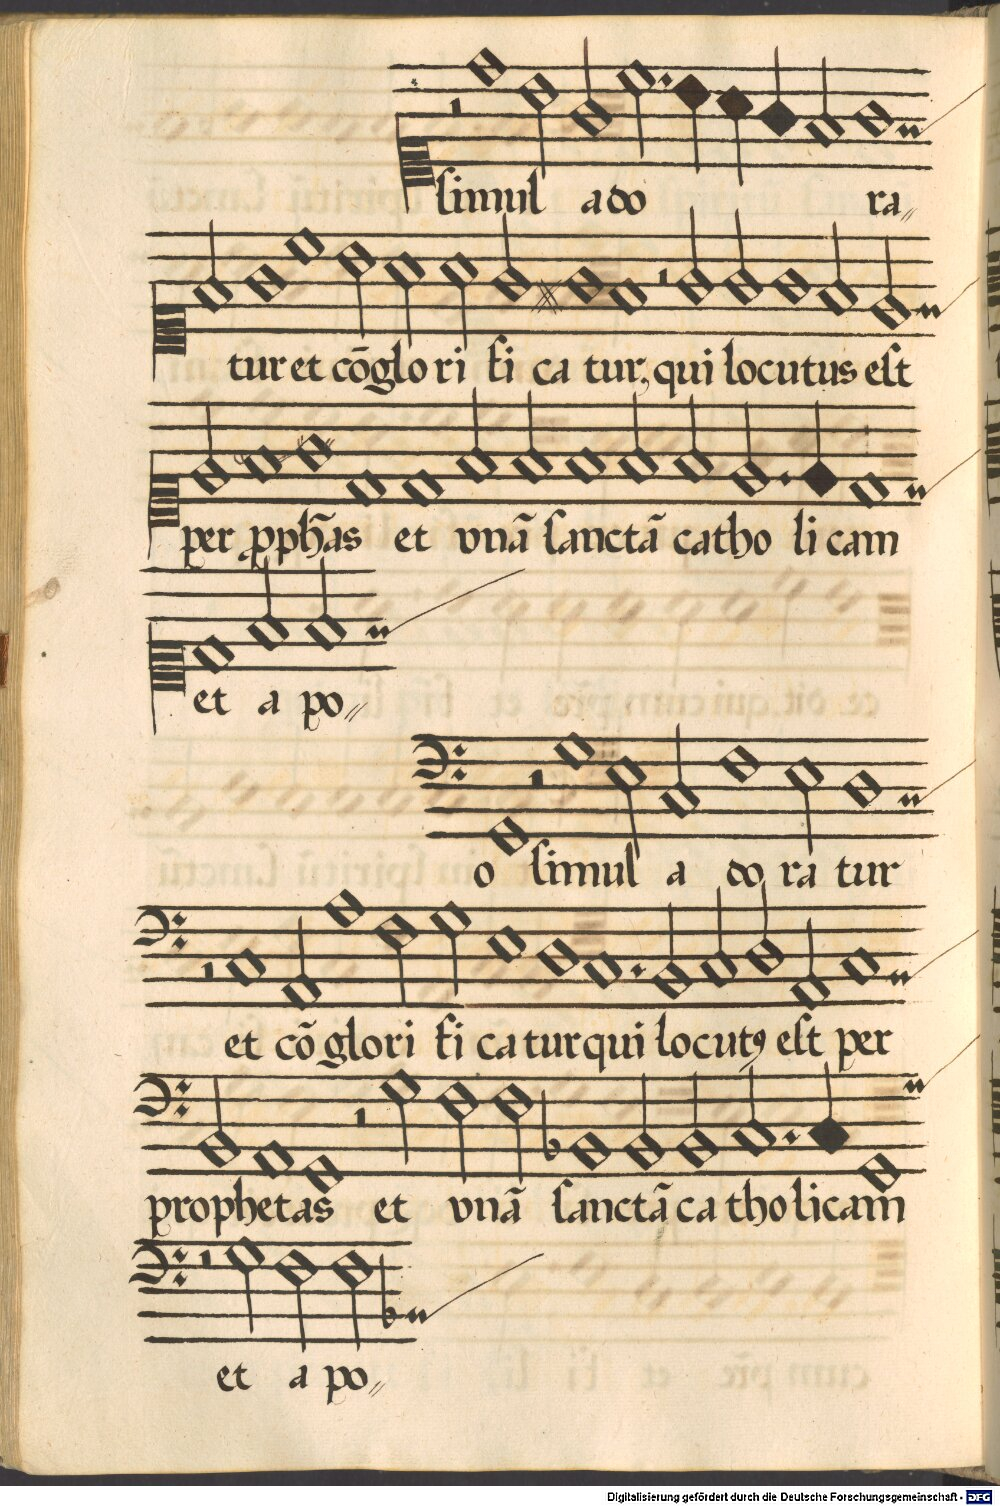 simul ado ra〃
tur et cõglo ri fi ca tur, qui locutus est
per ꝓph̃as et vnã sanctã catho li cam
et a po〃
o simul a do ra tur
et cõ glori fi ca tur qui locutꝰ est per
prophetas et vnã sanctã ca tho licam
et a po〃
Digitalisierung gefördert durch die Deutsche Forschungsgemeinschaft - DFG